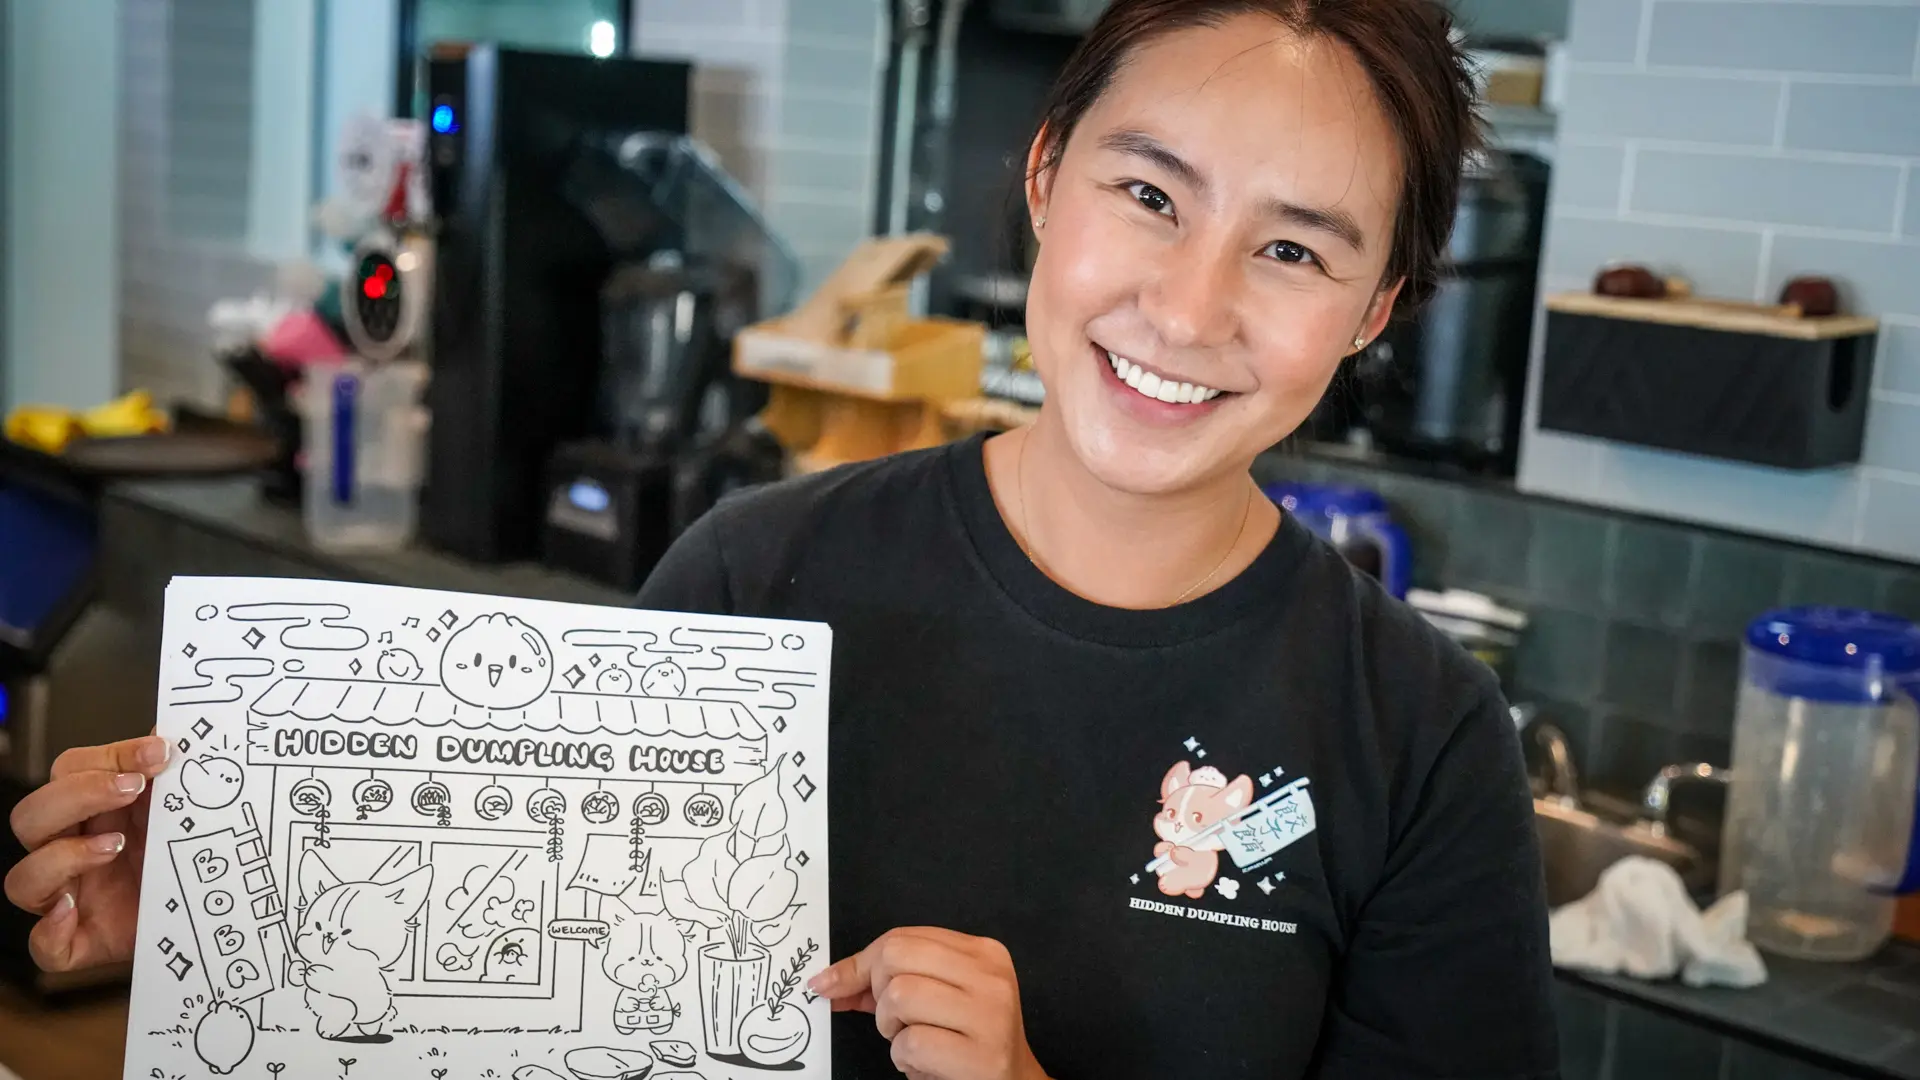 HIDDEN DUMPLING HOUSE
BOBA
WELCOME
餃子館
HIDDEN DUMPLING HOUSE